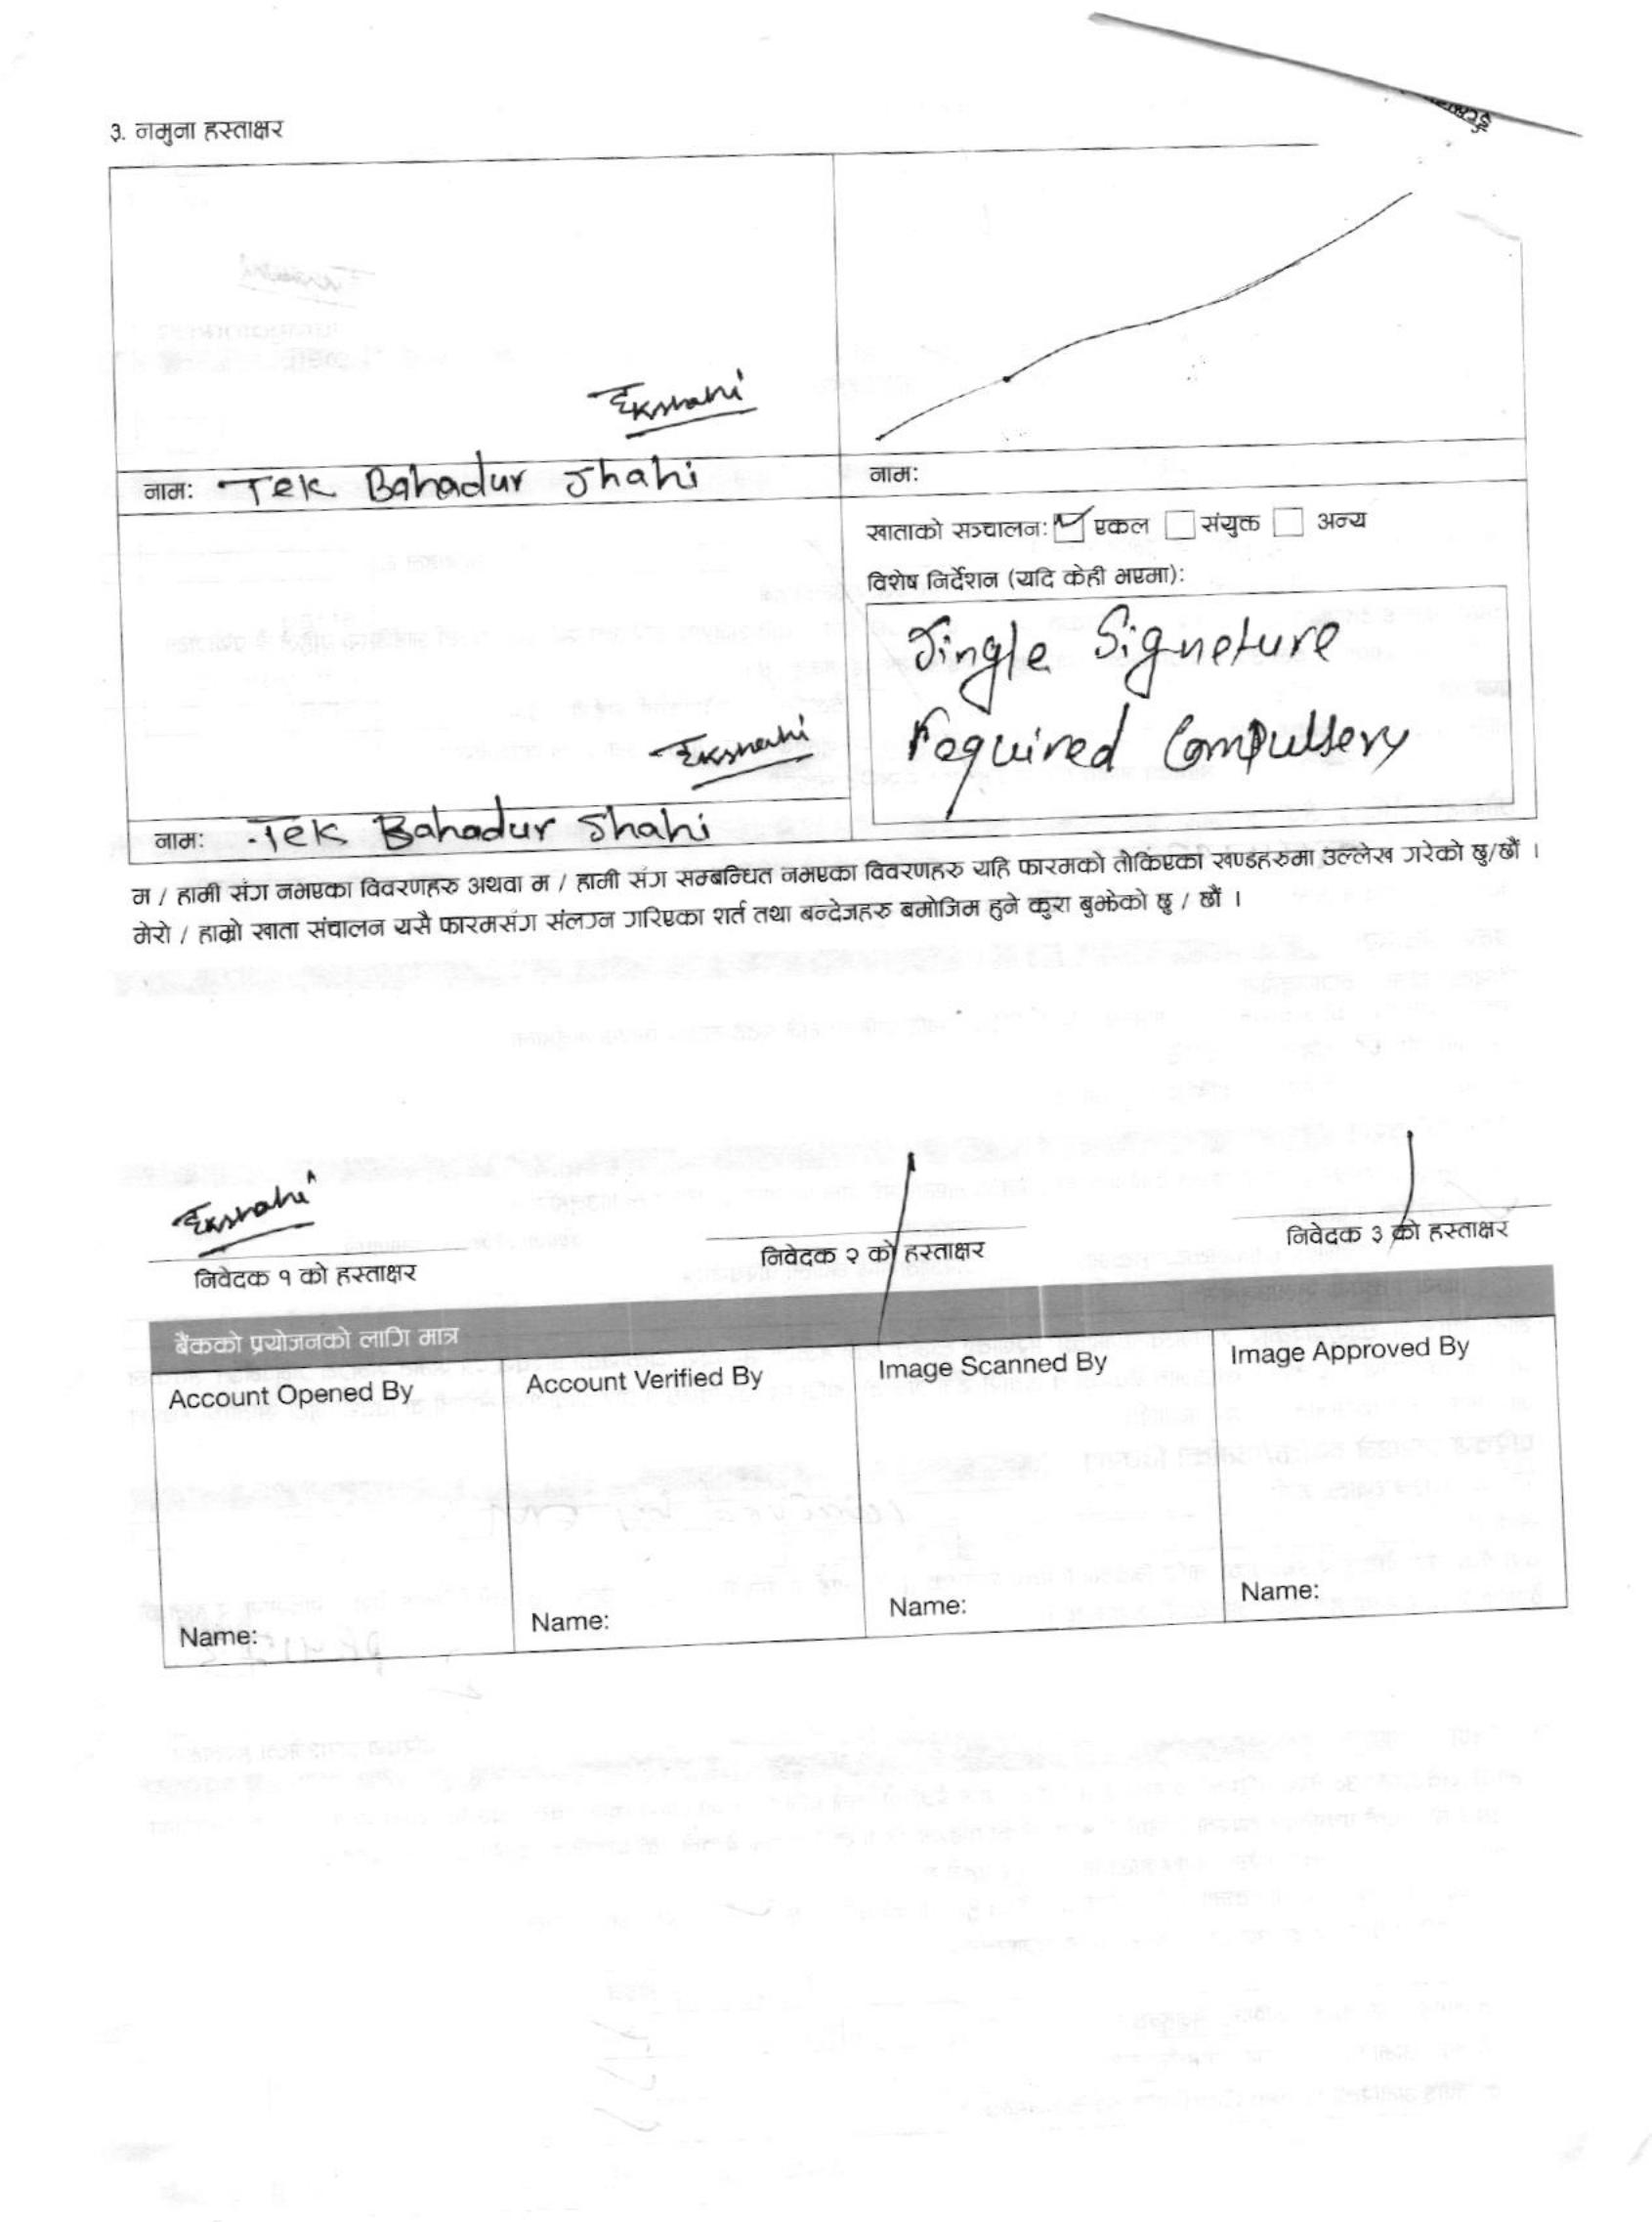 ३. नमुना हस्ताक्षर
नाम: Tek Bahadur Shahi
नाम:
खाताको सञ्चालन: एकल संयुक्त अन्य
विशेष निर्देशन (यदि केही भएमा):
Single Signeture
required Compulsery
नाम: Tek Bahadur Shahi
म / हामी संग नभएका विवरणहरु अथवा म / हामी संग सम्बन्धित नभएका विवरणहरु यहि फारमको तोकिएका खण्डहरुमा उल्लेख गरेको छु/छौं ।
मेरो / हाम्रो खाता संचालन यसै फारमसंग संलग्न गरिएका शर्त तथा बन्देजहरु बमोजिम हुने कुरा बुझेको छु / छौं ।
निवेदक १ को हस्ताक्षर
निवेदक २ को हस्ताक्षर
निवेदक ३ को हस्ताक्षर
बैंकको प्रयोजनको लागि मात्र
Account Opened By
Account Verified By
Image Scanned By
Image Approved By
Name:
Name:
Name:
Name: